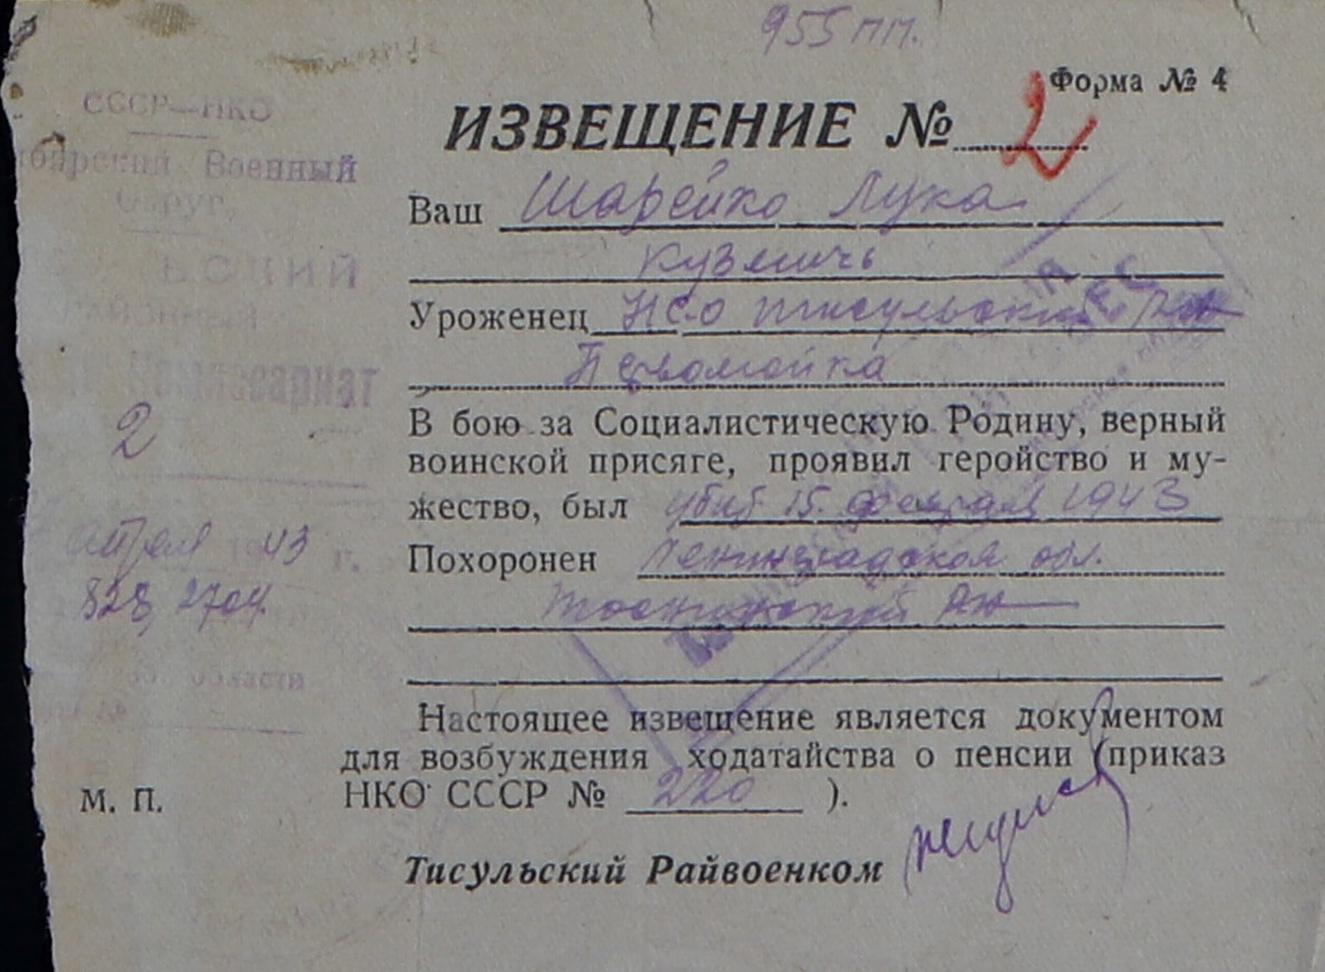 955 пп.
Форма № 4
ИЗВЕЩЕНИЕ № 2
СССР—НКО
Военный
Округ.
Ваш Шарейко Лука
Кузмичь
Уроженец НСО тисульский
РАЙОННЫЙ
Первомойка
Комиссариат
2
В бою за Социалистическую Родину, верный
воинской присяге, проявил геройство и му-
жество, был убит 15. февраля 1943
апреля 1943 г.
Похоронен Ленинградской обл.
828, 2704.
Тоснинский рн
области
Настоящее извещение является документом
для возбуждения ходатайства о пенсии (приказ
НКО СССР № 220 ).
М. П.
Тисульский Райвоенком